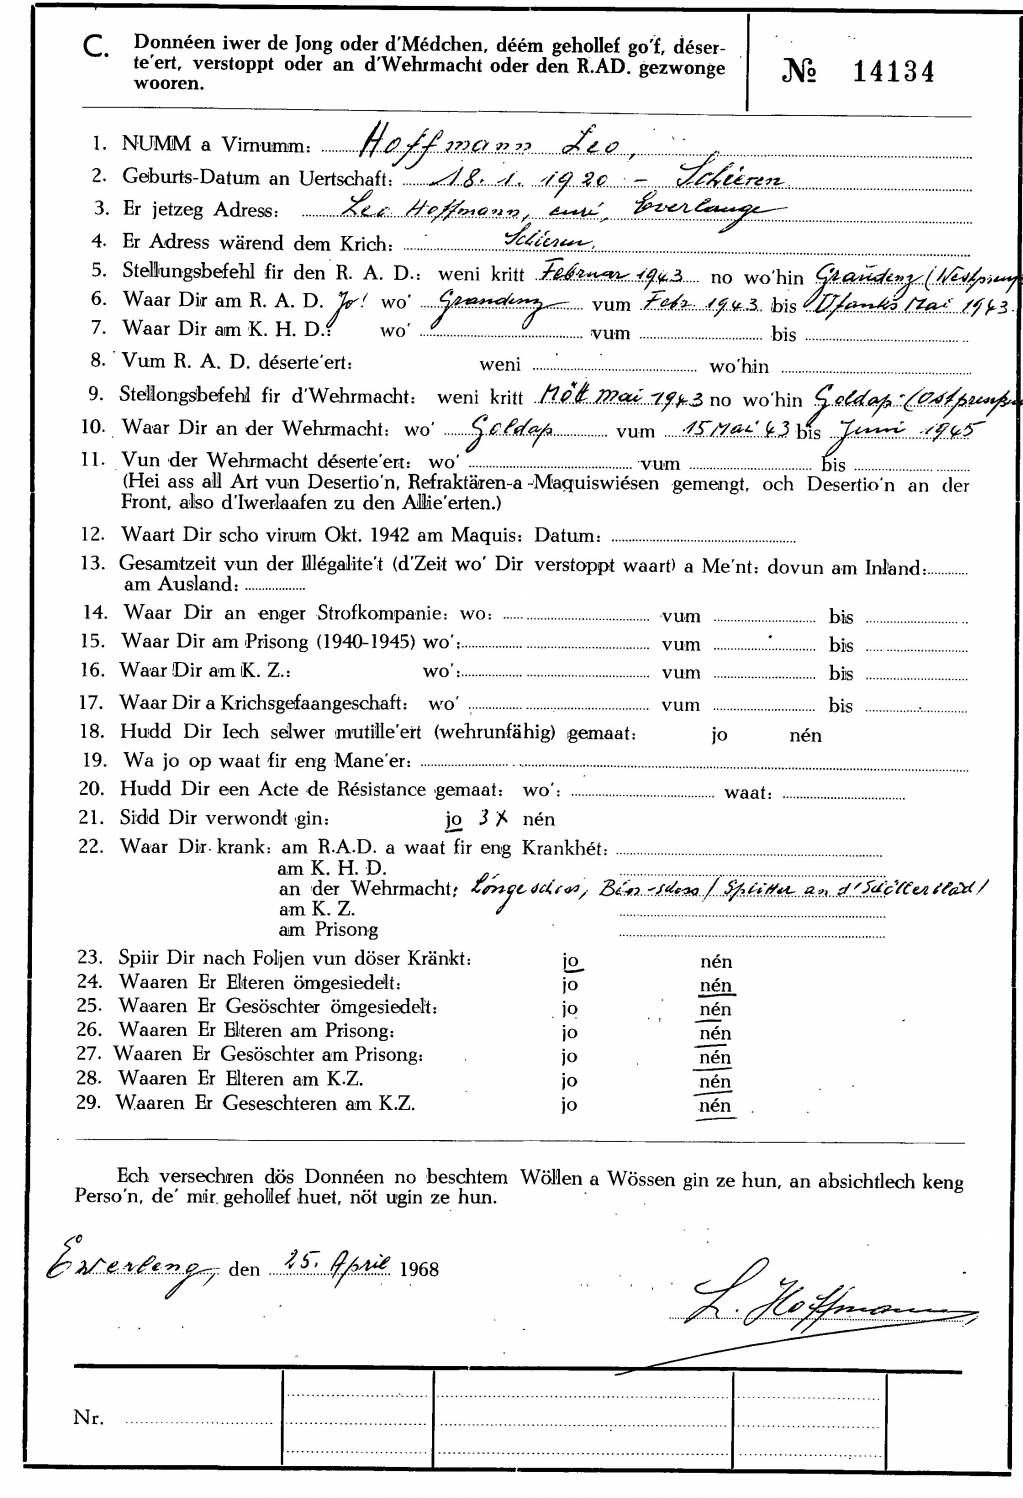 C. Donnéen iwer de Jong oder d'Médchen, déém gehollef go'f, déser-
te'ert, verstoppt oder an d'Wehrmacht oder den R.AD. gezwonge
wooren.
№ 14134
1. NUMM a Virnumm: Hoffmann Leo,
2. Geburts-Datum an Uertschaft: 18. 1. 1920 - Schieren
3. Er jetzeg Adress: Leo Hoffmann, curé, Everlange
4. Er Adress wärend dem Krich: Schieren.
5. Stellungsbefehl fir den R. A. D.: weni kritt Februar 1943 no wo'hin Graudenz (Westpreuß
6. Waar Dir am R. A. D. Jo! wo' Graudenz vum Febr. 1943 bis Ufanks Mai 1943.
7. Waar Dir am K. H. D.: wo' vum bis
8. Vum R. A. D. déserte'ert: weni wo'hin
9. Stellongsbefehl fir d'Wehrmacht: weni kritt Mött Mai 1943 no wo'hin Goldap (Ostpreußen
10. Waar Dir an der Wehrmacht: wo' Goldap vum 15 Mai 43 bis Juni 1945
11. Vun der Wehrmacht déserte'ert: wo' vum bis
(Hei ass all Art vun Desertio'n, Refraktären-a -Maquiswiésen gemengt, och Desertio'n an der
Front, also d'Iwerlaafen zu den Allie'erten.)
12. Waart Dir scho virum Okt. 1942 am Maquis: Datum:
13. Gesamtzeit vun der Illégalite't (d'Zeit wo' Dir verstoppt waart) a Me'nt: dovun am Inland:
am Ausland:
14. Waar Dir an enger Strofkompanie: wo: vum bis
15. Waar Dir am Prisong (1940-1945) wo': vum bis
16. Waar Dir am K. Z.: wo': vum bis
17. Waar Dir a Krichsgefaangeschaft: wo' vum bis
18. Hudd Dir Iech selwer mutille'ert (wehrunfähig) gemaat: jo nén
19. Wa jo op waat fir eng Mane'er:
20. Hudd Dir een Acte de Résistance gemaat: wo': waat:
21. Sidd Dir verwondt gin: jo 3 X nén
22. Waar Dir krank: am R.A.D. a waat fir eng Krankhét:
am K. H. D.
an der Wehrmacht: Longeschoss, Bén-schoss / Splitter an d'Schöllerblad/
am K. Z.
am Prisong
23. Spiir Dir nach Foljen vun döser Kränkt: jo nén
24. Waaren Er Elteren ömgesiedelt: jo nén
25. Waaren Er Gesöschter ömgesiedelt: jo nén
26. Waaren Er Elteren am Prisong: jo nén
27. Waaren Er Gesöschter am Prisong: jo nén
28. Waaren Er Elteren am K.Z. jo nén
29. Waaren Er Geseschteren am K.Z. jo nén
Ech versechren dös Donnéen no beschtem Wöllen a Wössen gin ze hun, an absichtlech keng
Perso'n, de' mir gehollef huet, nöt ugin ze hun.
Everleng, den 25. April 1968
L. Hoffmann,
Nr.